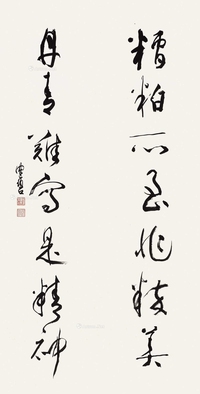 糟粕所存非精美
丹青难写是精神